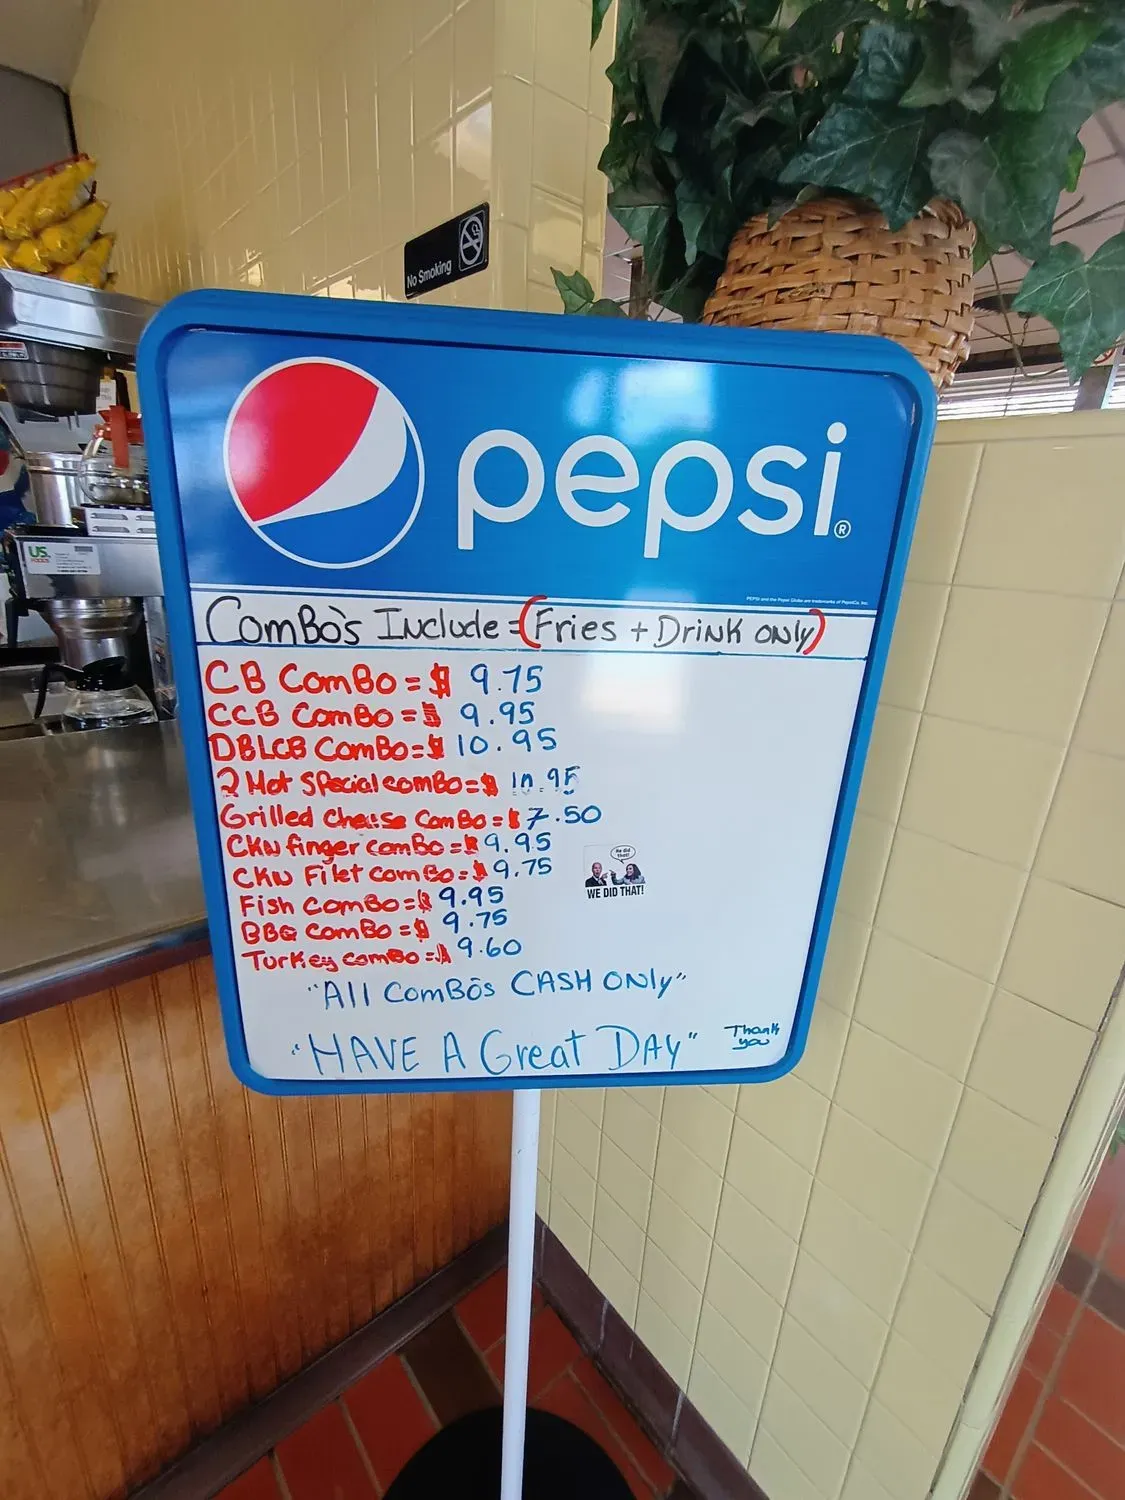 No Smoking
pepsi®
PEPSI and the Pepsi Globe are trademarks of PepsiCo, Inc.
ComBo's Include = (Fries + Drink only)
CB ComBo = $ 9.75
CCB ComBo = $ 9.95
DBLCB ComBo = $ 10.95
2 Hot Special comBo = $ 10.95
Grilled Cheese ComBo = $ 7.50
CKN finger comBo = $ 9.95
CKN Filet comBo = $ 9.75
He did that!
WE DID THAT!
Fish comBo = $ 9.95
BBQ comBo = $ 9.75
Turkey comBo = $ 9.60
"All ComBo's CASH ONly"
"HAVE A Great DAY"
Thank you
US. FOODS